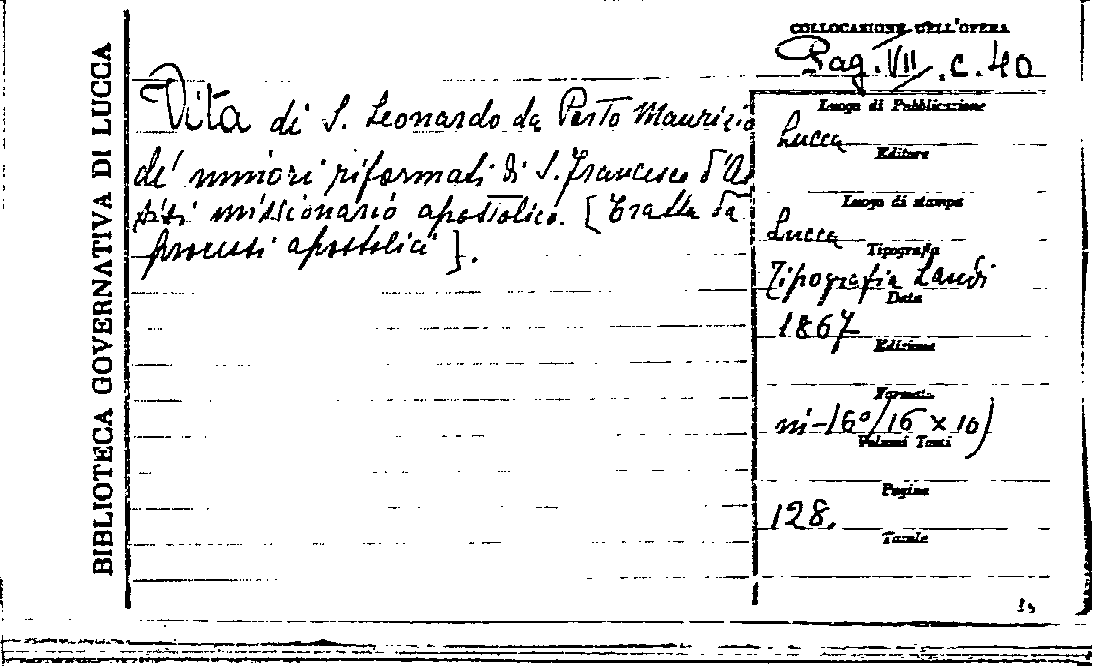 BIBLIOTECA GOVERNATIVA DI LUCCA
Vita di S. Leonardo da Porto Maurizio
de' minori riformati di S. Francesco d'As
sisi missionario apostolico. [Tratta da
processi apostolici].
COLLOCAZIONE DELL'OPERA
Pag. VII. C. 40
Luogo di Pubblicazione
Lucca
Editore
Luogo di stampa
Lucca
Tipografia
Tipografia Landi
Data
1867
Edizione
Formato
in-16° (16 × 10)
Volumi Tomi
Pagine
128.
Tavole